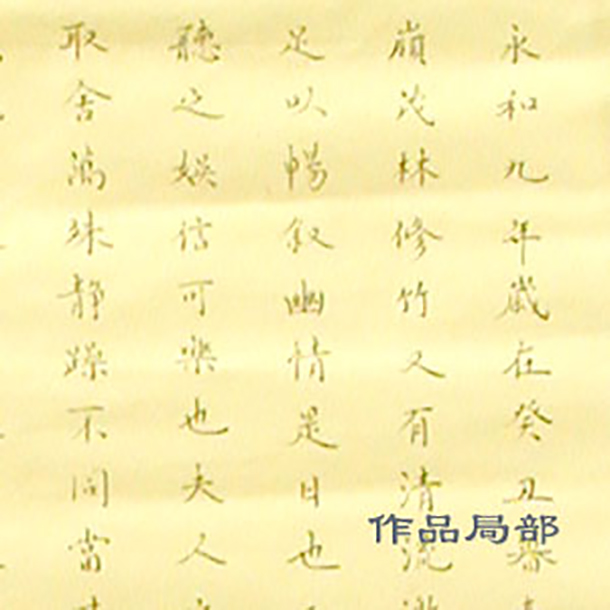 永和九年歲在癸丑暮
嶺茂林修竹又有清流
足以暢叙幽情是日也
聽之娛信可樂也夫人
取舍萬殊静躁不同當
作品局部